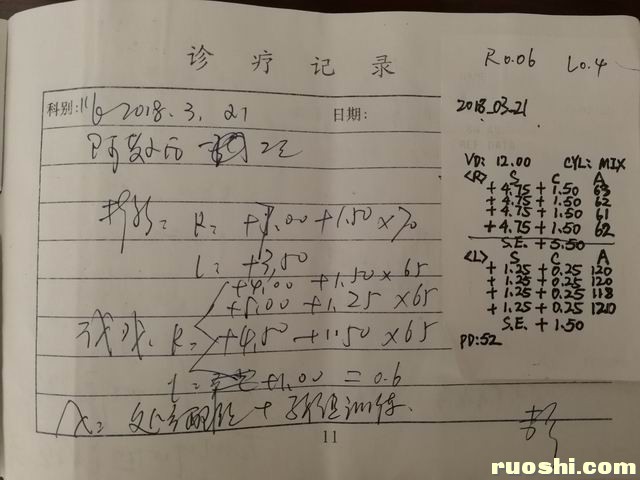 诊疗记录
科别: 2018.3.21 日期:
R: +7.00 +1.50 ×70
L: +3.50
+4.00 +1.50 × 65
+5.00 +1.25 ×65
R: +4.50 +1.50 ×65
L: +1.00 = 0.6
配镜 + 训练.
11
R0.06 L0.4
2018_03_21
VD: 12.00 CYL: MIX
<R> S C A
+ 4.75 + 1.50 63
+ 4.75 + 1.50 62
+ 4.75 + 1.50 61
+ 4.75 + 1.50 62
S.E. + 5.50
<L> S C A
+ 1.25 + 0.25 120
+ 1.25 + 0.25 120
+ 1.25 + 0.25 118
+ 1.25 + 0.25 120
S.E. + 1.50
PD:52
ruoshi.com